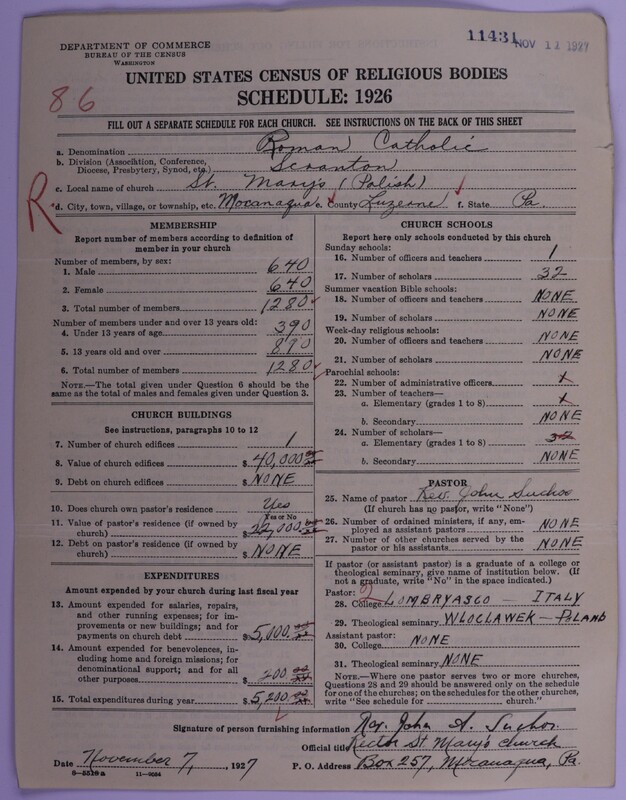 11431 NOV 11 1927
DEPARTMENT OF COMMERCE
BUREAU OF THE CENSUS
WASHINGTON
UNITED STATES CENSUS OF RELIGIOUS BODIES
SCHEDULE: 1926
86
FILL OUT A SEPARATE SCHEDULE FOR EACH CHURCH. SEE INSTRUCTIONS ON THE BACK OF THIS SHEET
a. Denomination Roman Catholic
b. Division (Association, Conference, Diocese, Presbytery, Synod, etc.) Scranton
c. Local name of church St. Mary's (Polish)
R
d. City, town, village, or township, etc. Mocanaqua e. County Luzerne f. State Pa.
MEMBERSHIP
Report number of members according to definition of
member in your church
Number of members, by sex:
1. Male 640
2. Female 640
3. Total number of members 1280
Number of members under and over 13 years old:
4. Under 13 years of age 390
5. 13 years old and over 890
6. Total number of members 1280
NOTE.—The total given under Question 6 should be the
same as the total of males and females given under Question 3.
CHURCH BUILDINGS
See instructions, paragraphs 10 to 12
7. Number of church edifices 1
8. Value of church edifices $40,000
9. Debt on church edifices $NONE
10. Does church own pastor's residence? Yes
Yes or No
11. Value of pastor's residence (if owned by
church) $22,000
12. Debt on pastor's residence (if owned by
church) $NONE
EXPENDITURES
Amount expended by your church during last fiscal year
13. Amount expended for salaries, repairs,
and other running expenses; for im-
provements or new buildings; and for
payments on church debt $5,000
14. Amount expended for benevolences, in-
cluding home and foreign missions; for
denominational support; and for all
other purposes $200
15. Total expenditures during year $5,200
CHURCH SCHOOLS
Report here only schools conducted by this church
Sunday schools:
16. Number of officers and teachers 1
17. Number of scholars 32
Summer vacation Bible schools:
18. Number of officers and teachers NONE
19. Number of scholars NONE
Week-day religious schools:
20. Number of officers and teachers NONE
21. Number of scholars NONE
Parochial schools:
22. Number of administrative officers 1
23. Number of teachers—
a. Elementary (grades 1 to 8) 1
b. Secondary NONE
24. Number of scholars—
a. Elementary (grades 1 to 8) 32
b. Secondary NONE
PASTOR
25. Name of pastor Rev. John Suchos
(If church has no pastor, write "None")
26. Number of ordained ministers, if any, em-
ployed as assistant pastors NONE
27. Number of other churches served by the
pastor or his assistants NONE
If pastor (or assistant pastor) is a graduate of a college or
theological seminary, give name of institution below. (If
not a graduate, write "No" in the space indicated.)
Pastor: 2
28. College LOMBRYASGO — ITALY
29. Theological seminary WLOCLAWEK — POLAND
Assistant pastor:
30. College NONE
31. Theological seminary NONE
NOTE.—Where one pastor serves two or more churches,
Questions 28 and 29 should be answered only on the schedule
for one of the churches; on the schedules for the other churches,
write "See schedule for church."
Signature of person furnishing information Rev. John A. Suchos
Official title Rector St Mary's church
Date November 7, 1927 P. O. Address Box 257, Mocanaqua, Pa.
8—5518a 11—9034